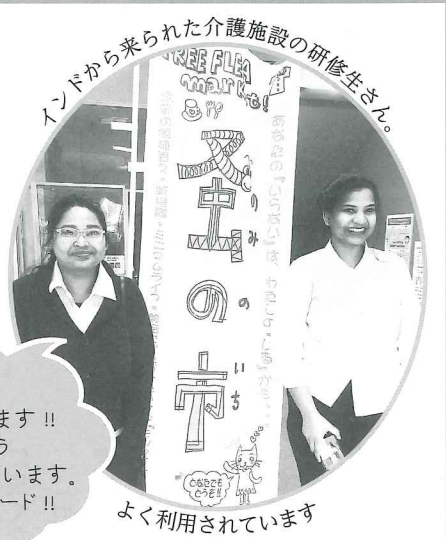 インドから来られた介護施設の研修生さん。
FREE FLEA
market!
あなたの『いらない』は、わたしの『いる』かも...
蚤の市
のみのいち
どなたでも
どうぞ!!
ます!!
う
います。
ード!!
よく利用されています